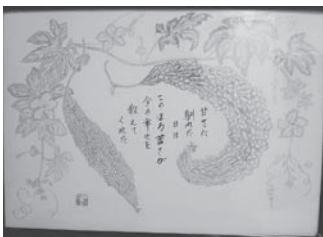 甘さに
馴れた
日は
このほろ苦さが
今の幸せを
教えて
くれた